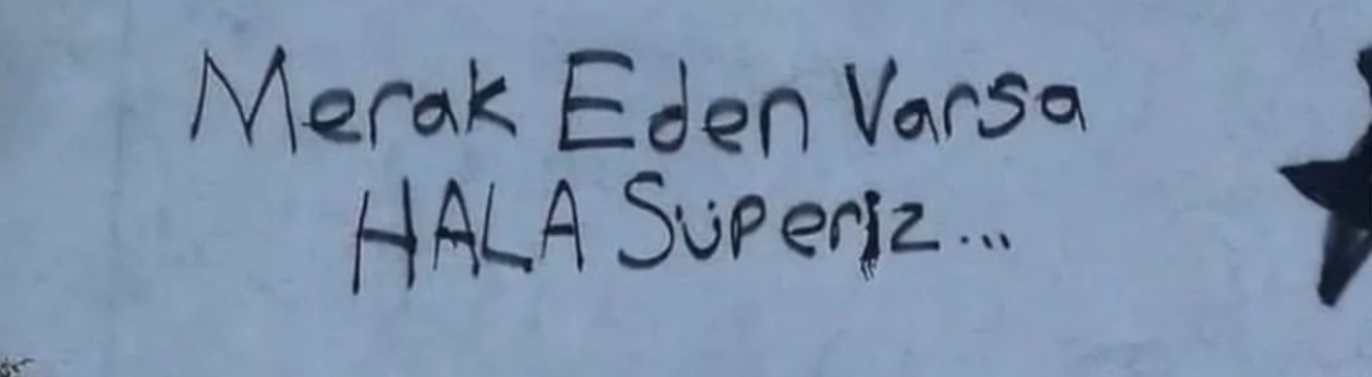 Merak Eden Varsa
HALA Süperiz...